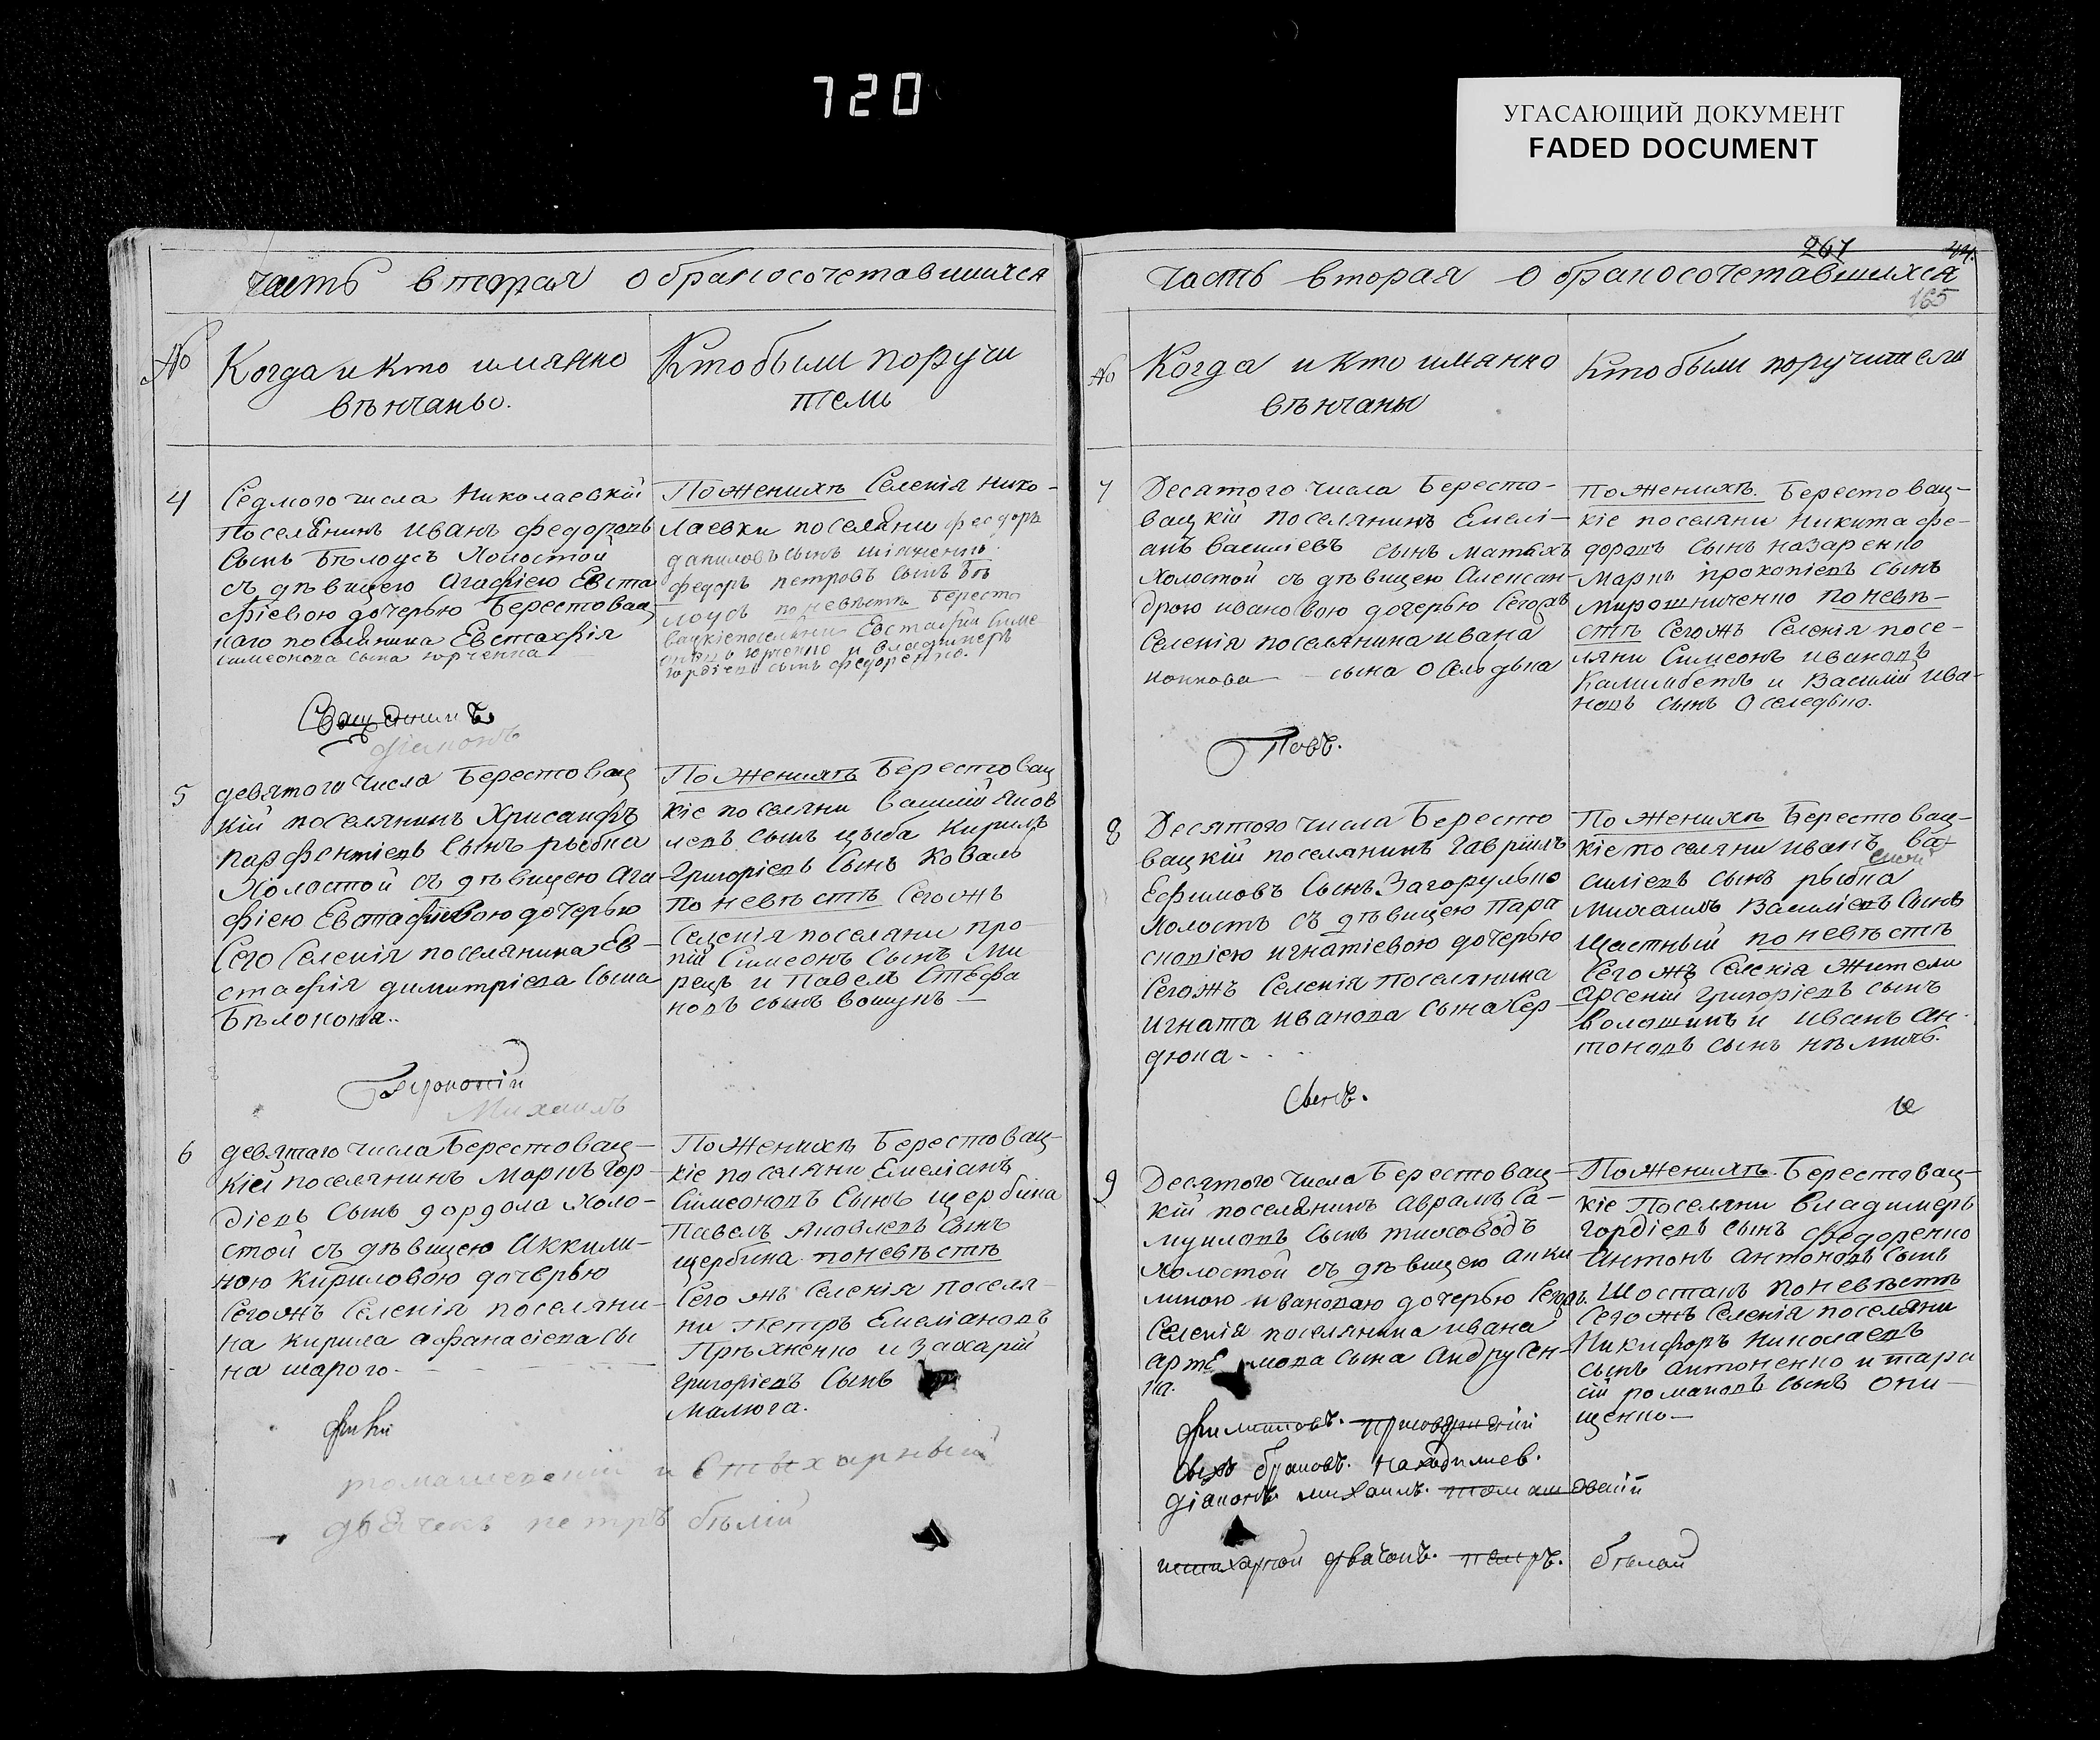 720
УГАСАЮЩИЙ ДОКУМЕНТ
FADED DOCUMENT
часть вторая о бракосочетавшихся
№
Когда и кто имянно
вѣнчаны.
Кто были поручи
тели
4
Седмого числа Николаевкій
поселянинъ Иванъ Федоровъ
сынъ Бѣлоусъ холостой
съ дѣвицею Агафіею Евста
фіевою дочерью Берестовац
каго поселянина Евстафія
симеонова сына юрченка
По женихѣ селенія Нико-
лаевки поселяни федоръ
даниловъ сынъ
федоръ петровъ сынъ Бѣ
лоусъ по невѣстѣ Бересто
вацкіе поселяни Евстафій Симе
оновъ юрченко и владимеръ
гордіевъ сынъ федоренко.
Священникъ
діаконъ
5
девятого числа Берестовац
кій поселянинъ Хрисанфъ
парфентіевъ сынъ рыбка
холостой съ дѣвицею Ага
фіею Евстафіевою дочерью
сего селенія поселянина Ев-
стафія димитріева сына
Бѣлоконя..
По женихѣ Берестовац
кіе поселяни василій яков
левъ сынъ цыба Кирилъ
Григоріевъ сынъ Коваль
по невѣстѣ сегожъ
селенія поселяни про
пій Симеонъ сынъ Ми
рецъ и Павелъ Стефа
новъ сынъ вошунъ
Михаилъ
6
девятаго числа Берестовац-
кій поселянинъ Маркъ гор-
діевъ сынъ дордола холо-
стой съ дѣвицею Аккили-
ною Кириловою дочерью
сегожъ селенія поселяни-
на кирила афанасіева сы
на шарого
По женихѣ Берестовац-
кіе поселяни Емеліанъ
Симеоновъ сынъ щербина
Павелъ яковлевъ сынъ
щербина по невѣстѣ
сегожъ селенія поселя
ни Петръ Емеліановъ
Пряженко и Захарій
григоріевъ сынъ
малюга.
томашевскій и стыхарный
дьячекъ петръ бѣлій
267
44.
часть вторая о бракосочетавшихся
165
№
Когда и кто имянно
вѣнчаны
Кто были поручители
7
Десятого числа Бересто-
вацкій поселянинъ Емелі-
анъ василіевъ сынъ матяхъ
холостой съ дѣвицею Алексан-
дрою ивановою дочерью сегожъ
селенія поселянина ивана
сына Оселдька
По женихѣ. Берестовац-
кіе поселяни Никита фе-
доровъ сынъ назаренко
Маркъ прокопіевъ сынъ
мирошниченко по невѣ-
стѣ сегожъ селенія посе-
ляни Симеонъ ивановъ
Калимбетъ и Василій ива-
новъ сынъ Оселедько.
8
Десятого числа Бересто
вацкій поселянинъ Гавріилъ
Ефимовъ сынъ Загорулько
холостъ съ дѣвицею Пара
сковіею игнатіевою дочерью
сегожъ селенія поселянина
игната иванова сына Сер-
дюка
По женихѣ Берестовац-
кіе поселяни иванъ ва-
силіевъ сынъ рыбка
Михаилъ Василіевъ сынъ
щастный по невѣстѣ
сегожъ селенія жители
арсеній григоріевъ сынъ
волошинъ и иванъ ан-
тоновъ сынъ нѣмичъ.
9
Десятого числа Берестовац-
кій поселянинъ аврамъ са-
муиловъ сынъ тиховодъ
холостой съ дѣвицею аки
линою ивановою дочерью сегожъ.
селенія поселянина ивана
артемова сына андрусен-
ка.
По женихѣ. Берестовац-
кіе поселяни владимеръ
гордіевъ сынъ федоренко
антонъ антоновъ сынъ
Шостакъ по невѣстѣ
сегожъ селенія поселяни
Никифоръ Николаевъ
сынъ антоненко и тара
сій романовъ сынъ они-
щенко
сихъ браковъ. находился.
діаконъ михаилъ. томашевскій
истихарной дьячокъ. петръ. бѣлой